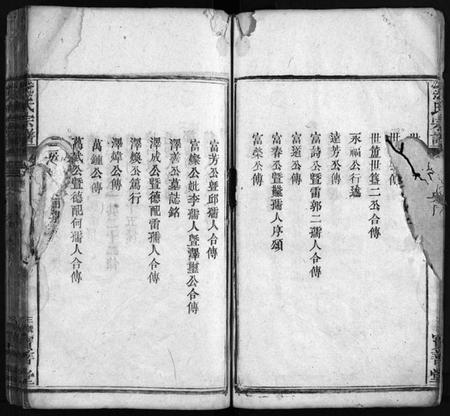 世盤世簋二公合傳
永福公行述
達芳公傳
富詩公暨雷郭二孺人合傳
富選公傳
富春公暨孺人序頌
富榮公傳
富芳公暨邱孺人合傳
富燦公妣李孺人暨澤璽公合傳
澤善公墓誌銘
澤成公暨德配雷孺人合傳
澤煥公篤行
澤煒公傳
萬鍾公傳
萬武公暨德配何孺人合傳
氏宗譜
寶善堂